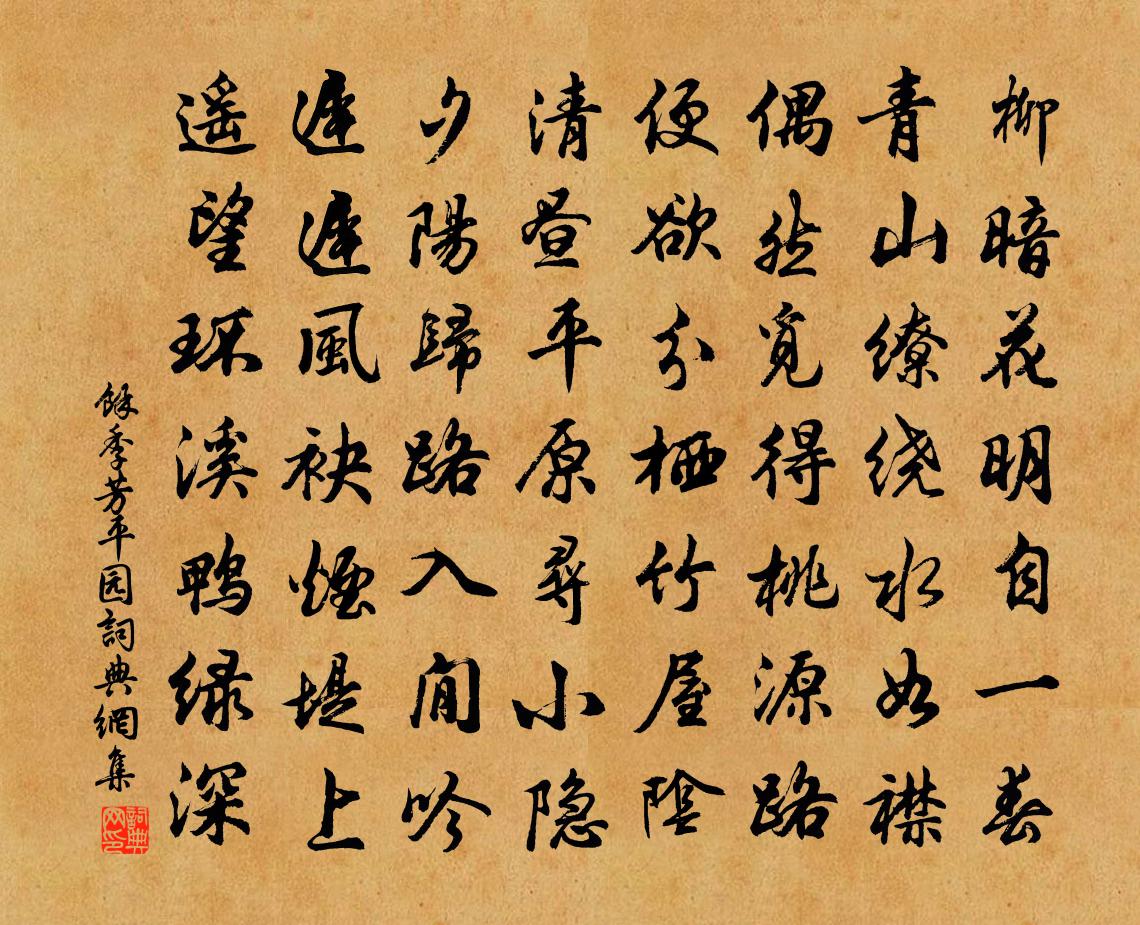 柳暗花明自一春
青山缭绕水如襟
偶然觅得桃源路
便欲分栖竹屋阴
清昼平原寻小隐
夕陽歸路入閒吟
遲遲風袂煙堤上
遥望环溪鸭绿深
餘季芳平园詞典網集
詞典网印